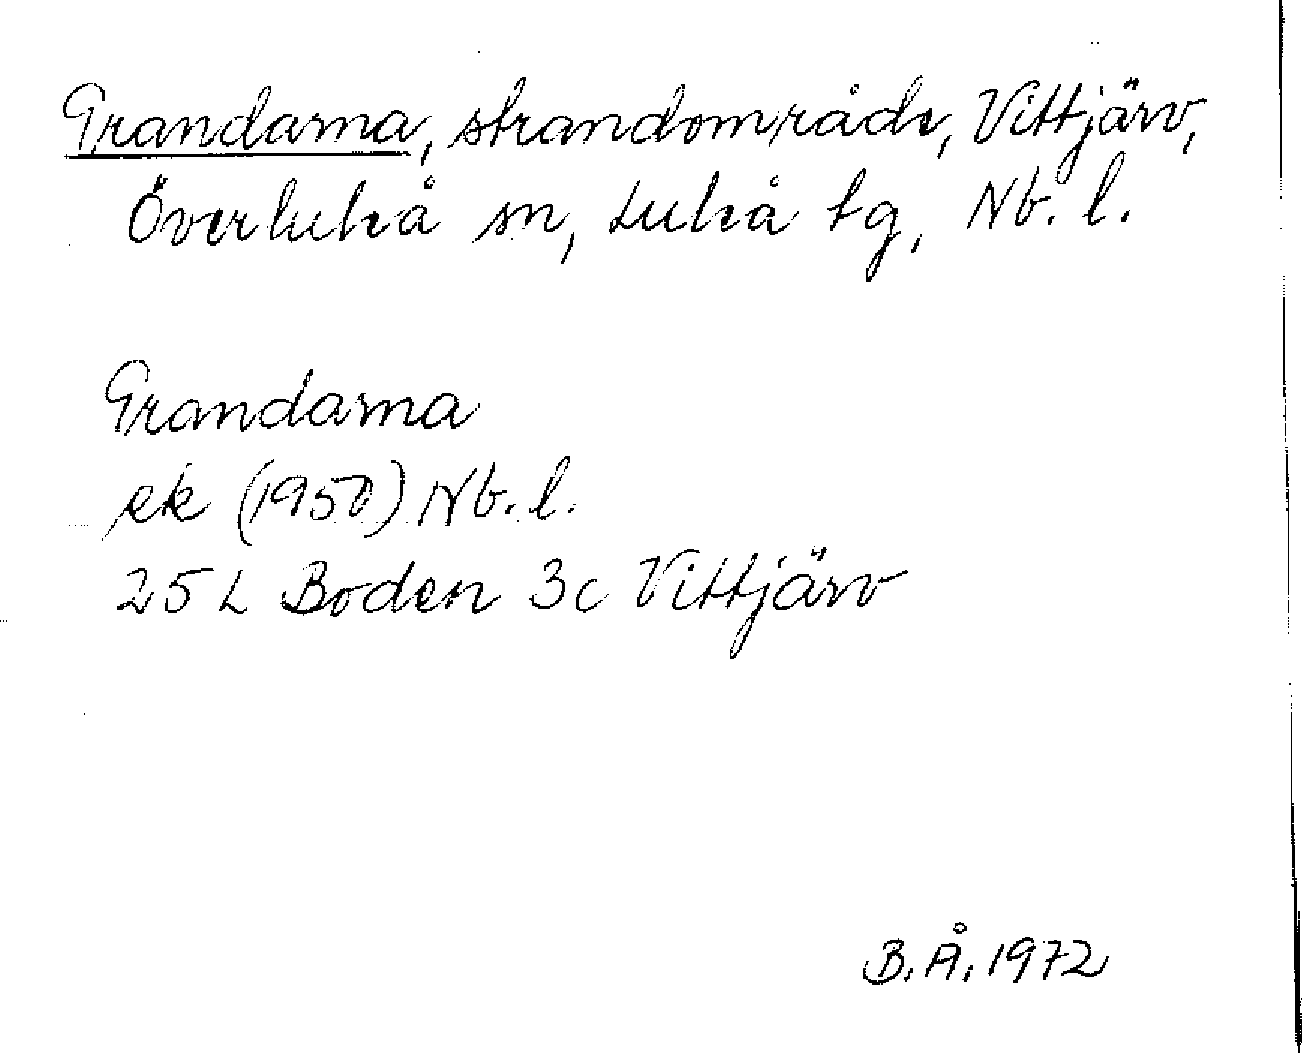 Grandarna, strandområde, Vittjärv,
Överluleå sn, Luleå tg, Nb. l.
Grandarna
ek (1950) Nb. l.
25 L Boden 3c Vittjärv
B.Å. 1972